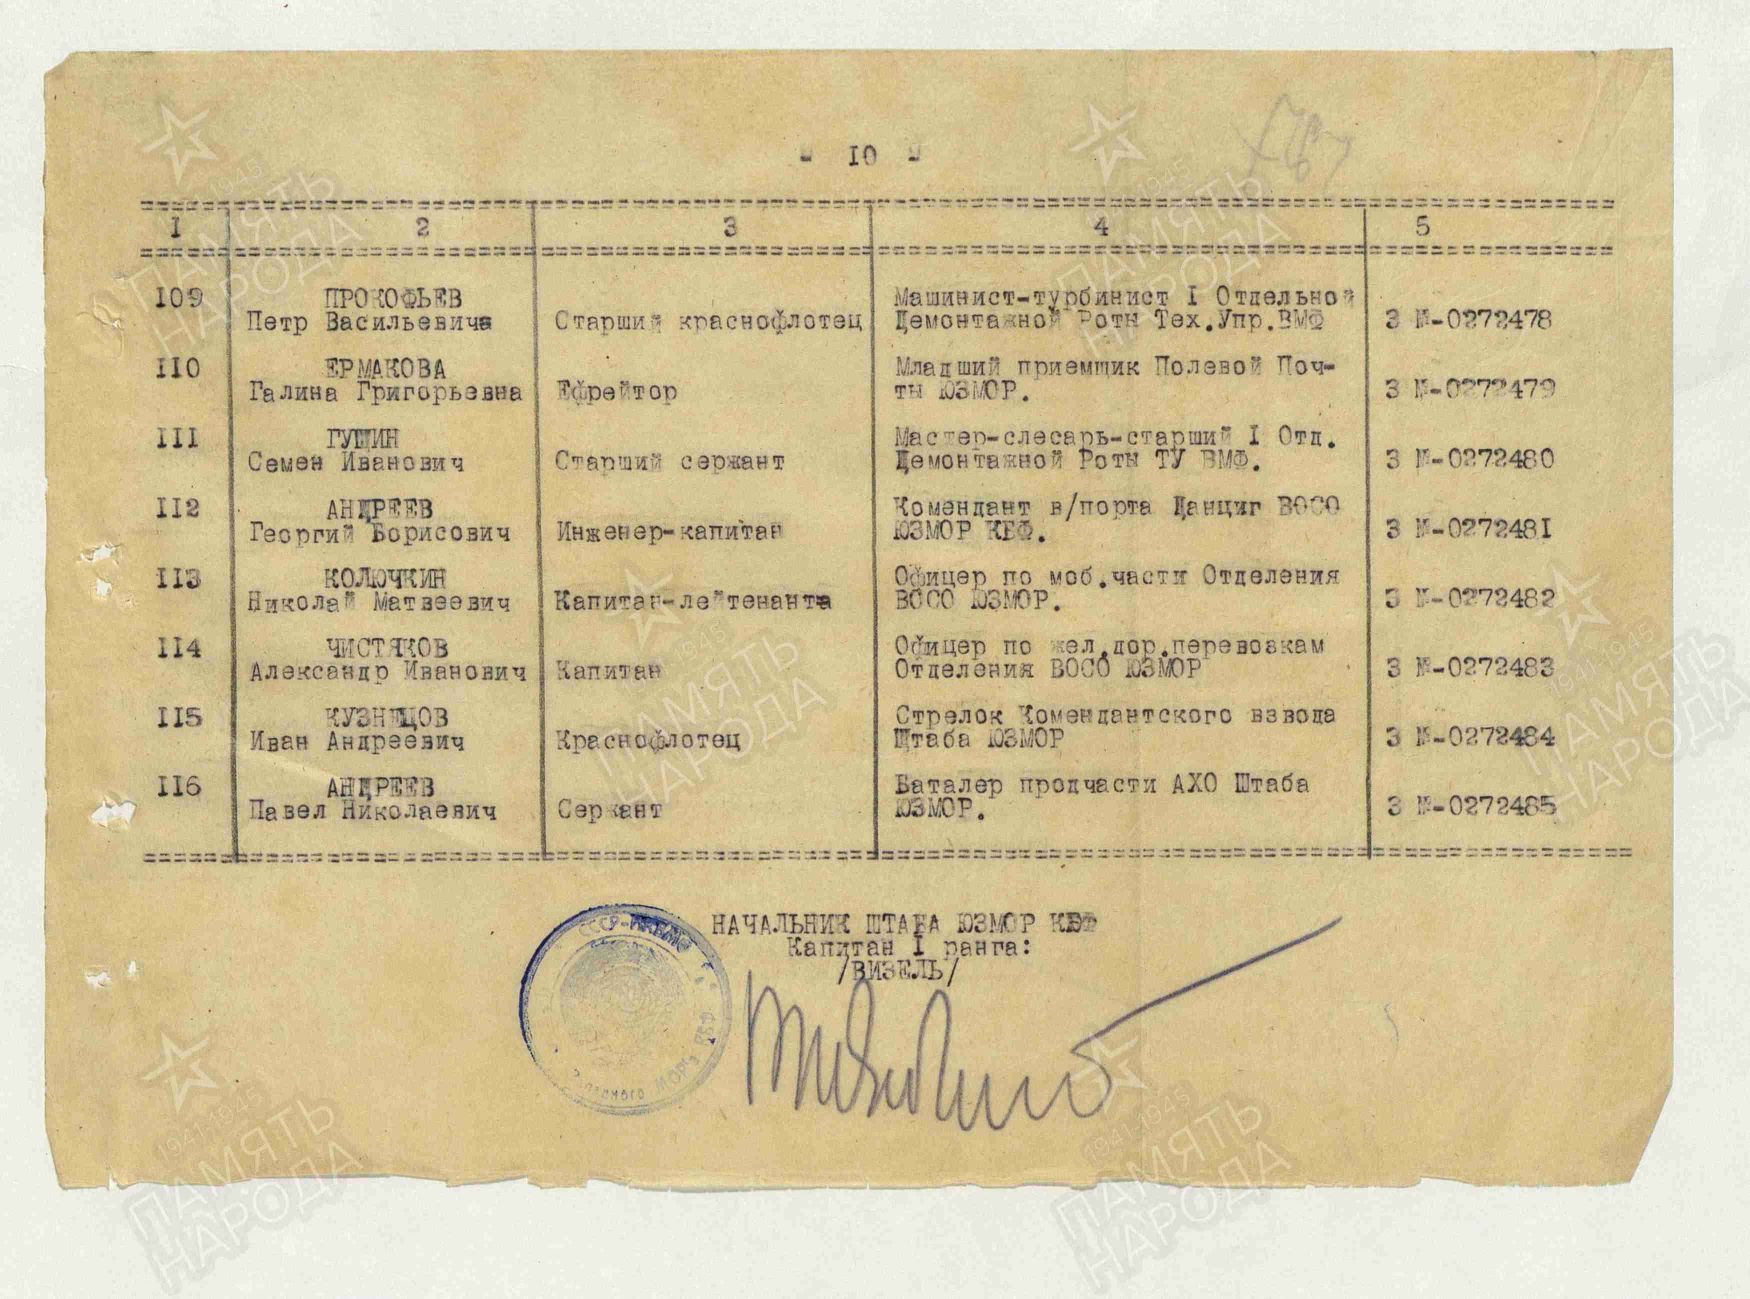 - 10 -
I 2 3 4 5
109 ПРОКОФЬЕВ Машинист-турбинист I Отдельной
Петр Васильевич Старший краснофлотец Демонтажной Роты Тех.Упр.ВМФ З №-0272478
110 ЕРМАКОВА Младший приемщик Полевой Поч-
Галина Григорьевна Ефрейтор ты ЮЗМОР. З №-0272479
III ГУЩИН Мастер-слесарь-старший I Отд.
Семен Иванович Старший сержант Демонтажной Роты ТУ ВМФ. З №-0272480
II2 АНДРЕЕВ Комендант в/порта Данциг ВОСО
Георгий Борисович Инженер-капитан ЮЗМОР КБФ. З №-0272481
II3 КОЛЮЧКИН Офицер по моб.части Отделения
Николай Матвеевич Капитан-лейтенант ВОСО ЮЗМОР. З №-0272482
II4 ЧИСТЯКОВ Офицер по жел.дор.перевозкам
Александр Иванович Капитан Отделения ВОСО ЮЗМОР З №-0272483
II5 КУЗНЕЦОВ Стрелок Комендантского взвода
Иван Андреевич Краснофлотец Штаба ЮЗМОР З №-0272484
II6 АНДРЕЕВ Баталер продчасти АХО Штаба
Павел Николаевич Сержант ЮЗМОР. З №-0272485
НАЧАЛЬНИК ШТАБА ЮЗМОР КБФ
Капитан I ранга:
/ВИЗЕЛЬ/
СССР-НКВМФ
1941-1945
ПАМЯТЬ
НАРОДА